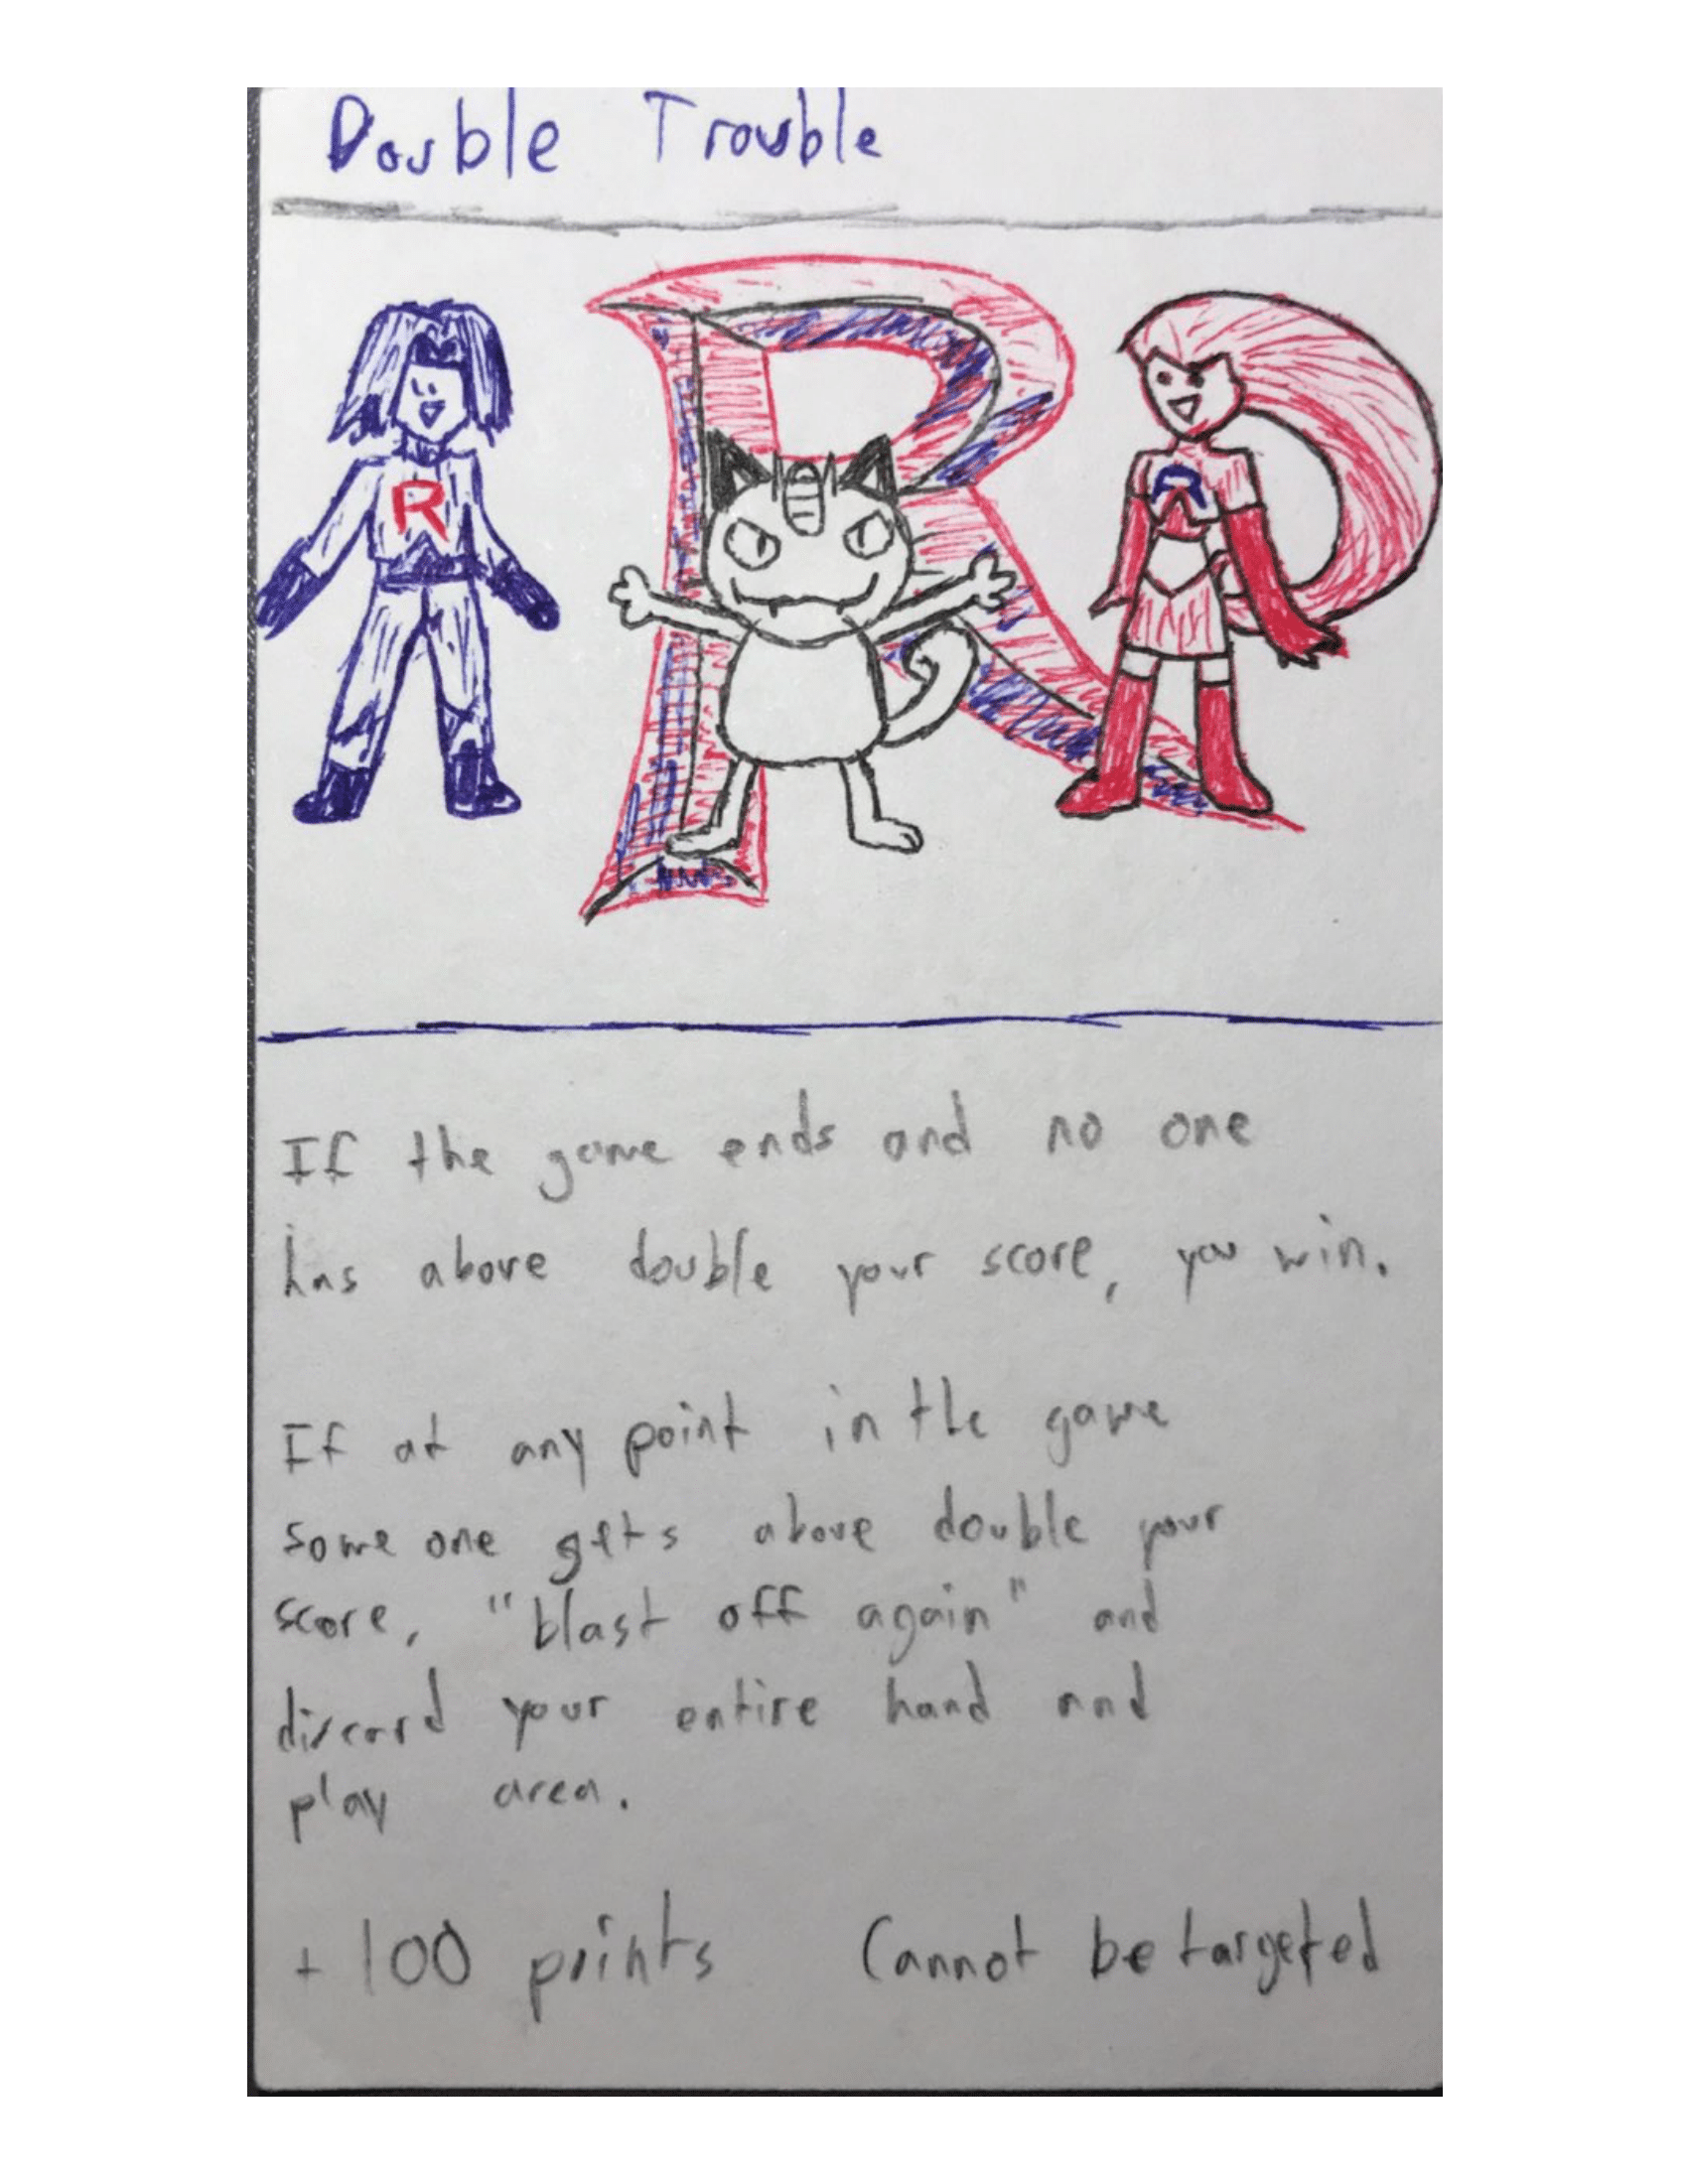 Double Trouble
R
R
R
If the game ends and no one
has above double your score, you win.
If at any point in the game
some one gets above double your
score, "blast off again" and
discard your entire hand and
play area.
+100 points Cannot be targeted